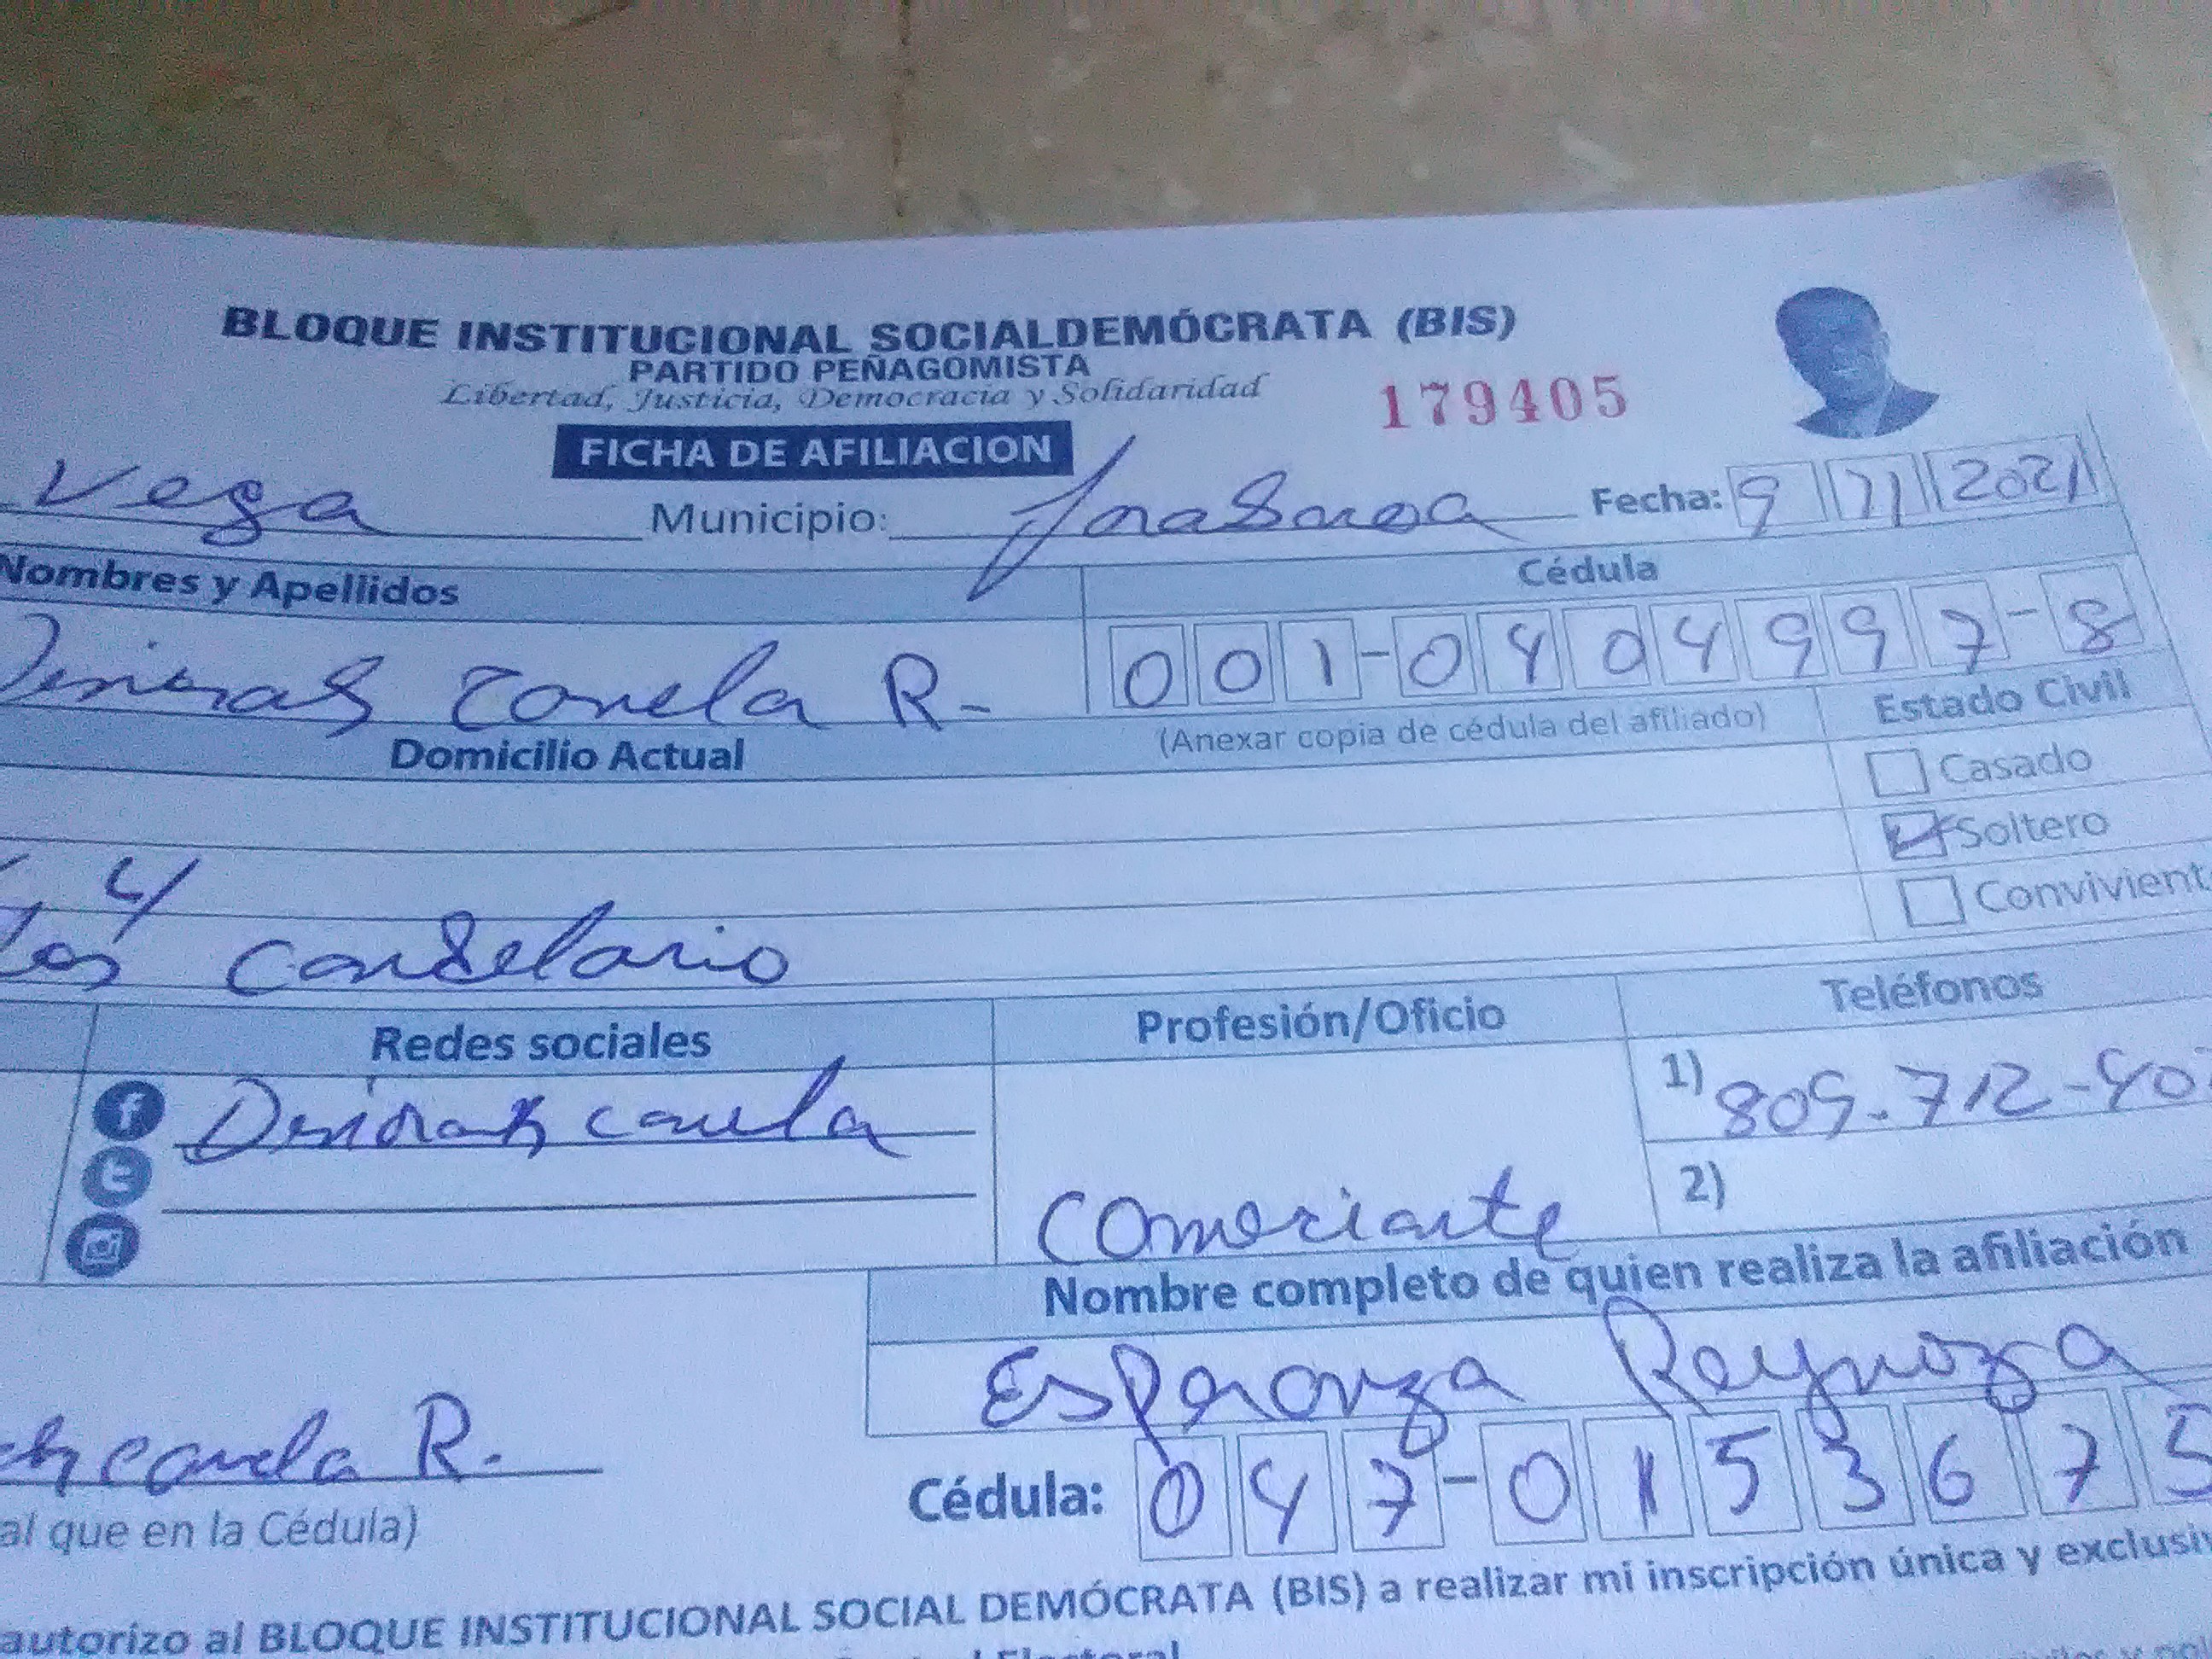 BLOQUE INSTITUCIONAL SOCIALDEMÓCRATA (BIS)
PARTIDO PEÑAGOMISTA
Libertad, Justicia, Democracia y Solidaridad
179405
FICHA DE AFILIACION
Vega Municipio: Fecha: 9 11 2021
Nombres y Apellidos Cédula
Canela R. 001-0404997-8
Domicilio Actual (Anexar copia de cédula del afiliado) Estado Civil
Casado
Soltero
4
Convivient
Los Candelario
Redes sociales Profesión/Oficio Teléfonos
canela 1) 809-712-40
2)
Comeriante
Nombre completo de quien realiza la afiliación
Esperanza Reynoza
canela R.
al que en la Cédula) Cédula: 047-0153675
autorizo al BLOQUE INSTITUCIONAL SOCIAL DEMÓCRATA (BIS) a realizar mi inscripción única y exclusiv
Electoral